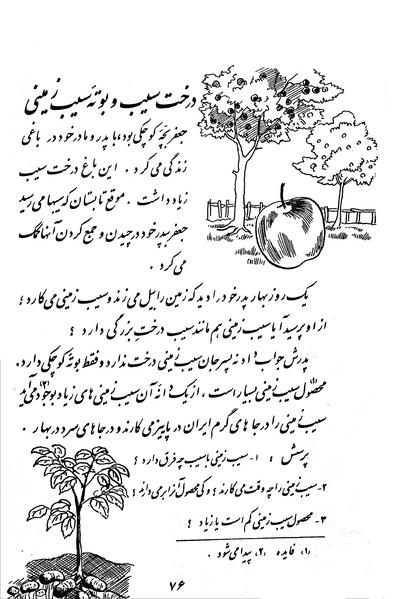 درخت سیب و بوتهٔ سیب زمینی
جعفر بچّهٔ کوچکی بود، با پدر و مادر خود در باغی
زندگی می کرد . این باغ درخت سیب
زیاد داشت . موقع تابستان که سیبها می رسید
جعفر بپدر خود در چیدن و جمع کردن آنها کمک
می کرد .
یک روز بهار پدر خود را دید که زمین را بیل می زند و سیب زمینی می کارد ؛
از او پرسید آیا سیب زمینی هم مانند سیب درختِ بزرگی دارد ؟
پدرش جواب داد نه پسر جان سیب زمینی درخت ندارد و فقط بوتهٔ کوچکی دارد.
محصول (۱) سیب زمینی بسیار است ، از یک دانهٔ آن سیب زمینی های زیاد بوجود می آید (۲)
سیب زمینی را در جاهای گرم ایران در پاییز می کارند و در جاهای سرد در بهار .
پرسش : ۱- سیب زمینی با سیب چه فرق دارد ؟
۲- سیب زمینی را چه وقت می کارند ؟ و کی محصول آنرا بر می دارند ؟
۳- محصول سیب زمینی کم است یا زیاد ؟
(۱) فایده (۲) پیدا می شود .
۷۶